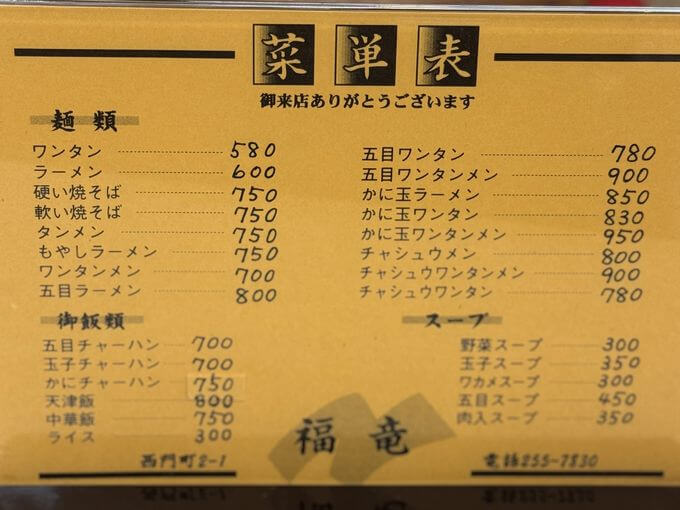 菜単表
御来店ありがとうございます
麺類
ワンタン 580
ラーメン 600
硬い焼そば 750
軟い焼そば 750
タンメン 750
もやしラーメン 750
ワンタンメン 700
五目ラーメン 800
五目ワンタン 780
五目ワンタンメン 900
かに玉ラーメン 850
かに玉ワンタン 830
かに玉ワンタンメン 950
チャシュウメン 800
チャシュウワンタンメン 900
チャシュウワンタン 780
御飯類
五目チャーハン 700
玉子チャーハン 700
かにチャーハン 750
天津飯 800
中華飯 750
ライス 300
スープ
野菜スープ 300
玉子スープ 350
ワカメスープ 300
五目スープ 450
肉入スープ 350
福竜
西門町2-1
電話255-7830